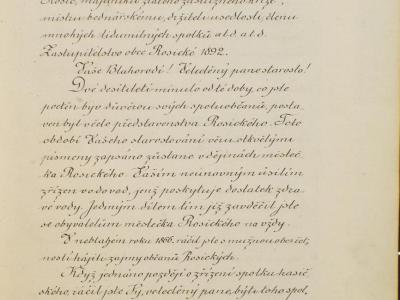 Rosic, majetníku zlatého záslužného kříže,
mistru bednářskému, držiteli usedlosti, členu
mnohých lidumilných spolků a.t.d. a.t.d.
Zastupitelstvo obce Rosické 1892.
Vaše Blahorodí! Velectěný pane starosto!
Dvě desítiletí minulo od té doby, co jste
poctěn byv důvěrou svých spoluobčanů, posta-
ven byl v čelo představenstva Rosického. Toto
období Vašeho starostování věru skvělými
písmeny zapsáno zůstane v dějinách městeč-
ka Rosického. Vaším neúnavným úsilím
zřízen vodovod, jenž poskytuje dostatek zdra-
vé vody. Jediným dílem tím již zavděčil jste
se obyvatelům městečka Rosického na vždy.
V neblahém roku 1866. ráčil jste s mužnou obezřet-
ností hájiti zájmy občanů Rosických.
Když jednáno později o zřízení spolku hasič-
ského, ráčil jste Ty, velectěný pane, býti toho spol-